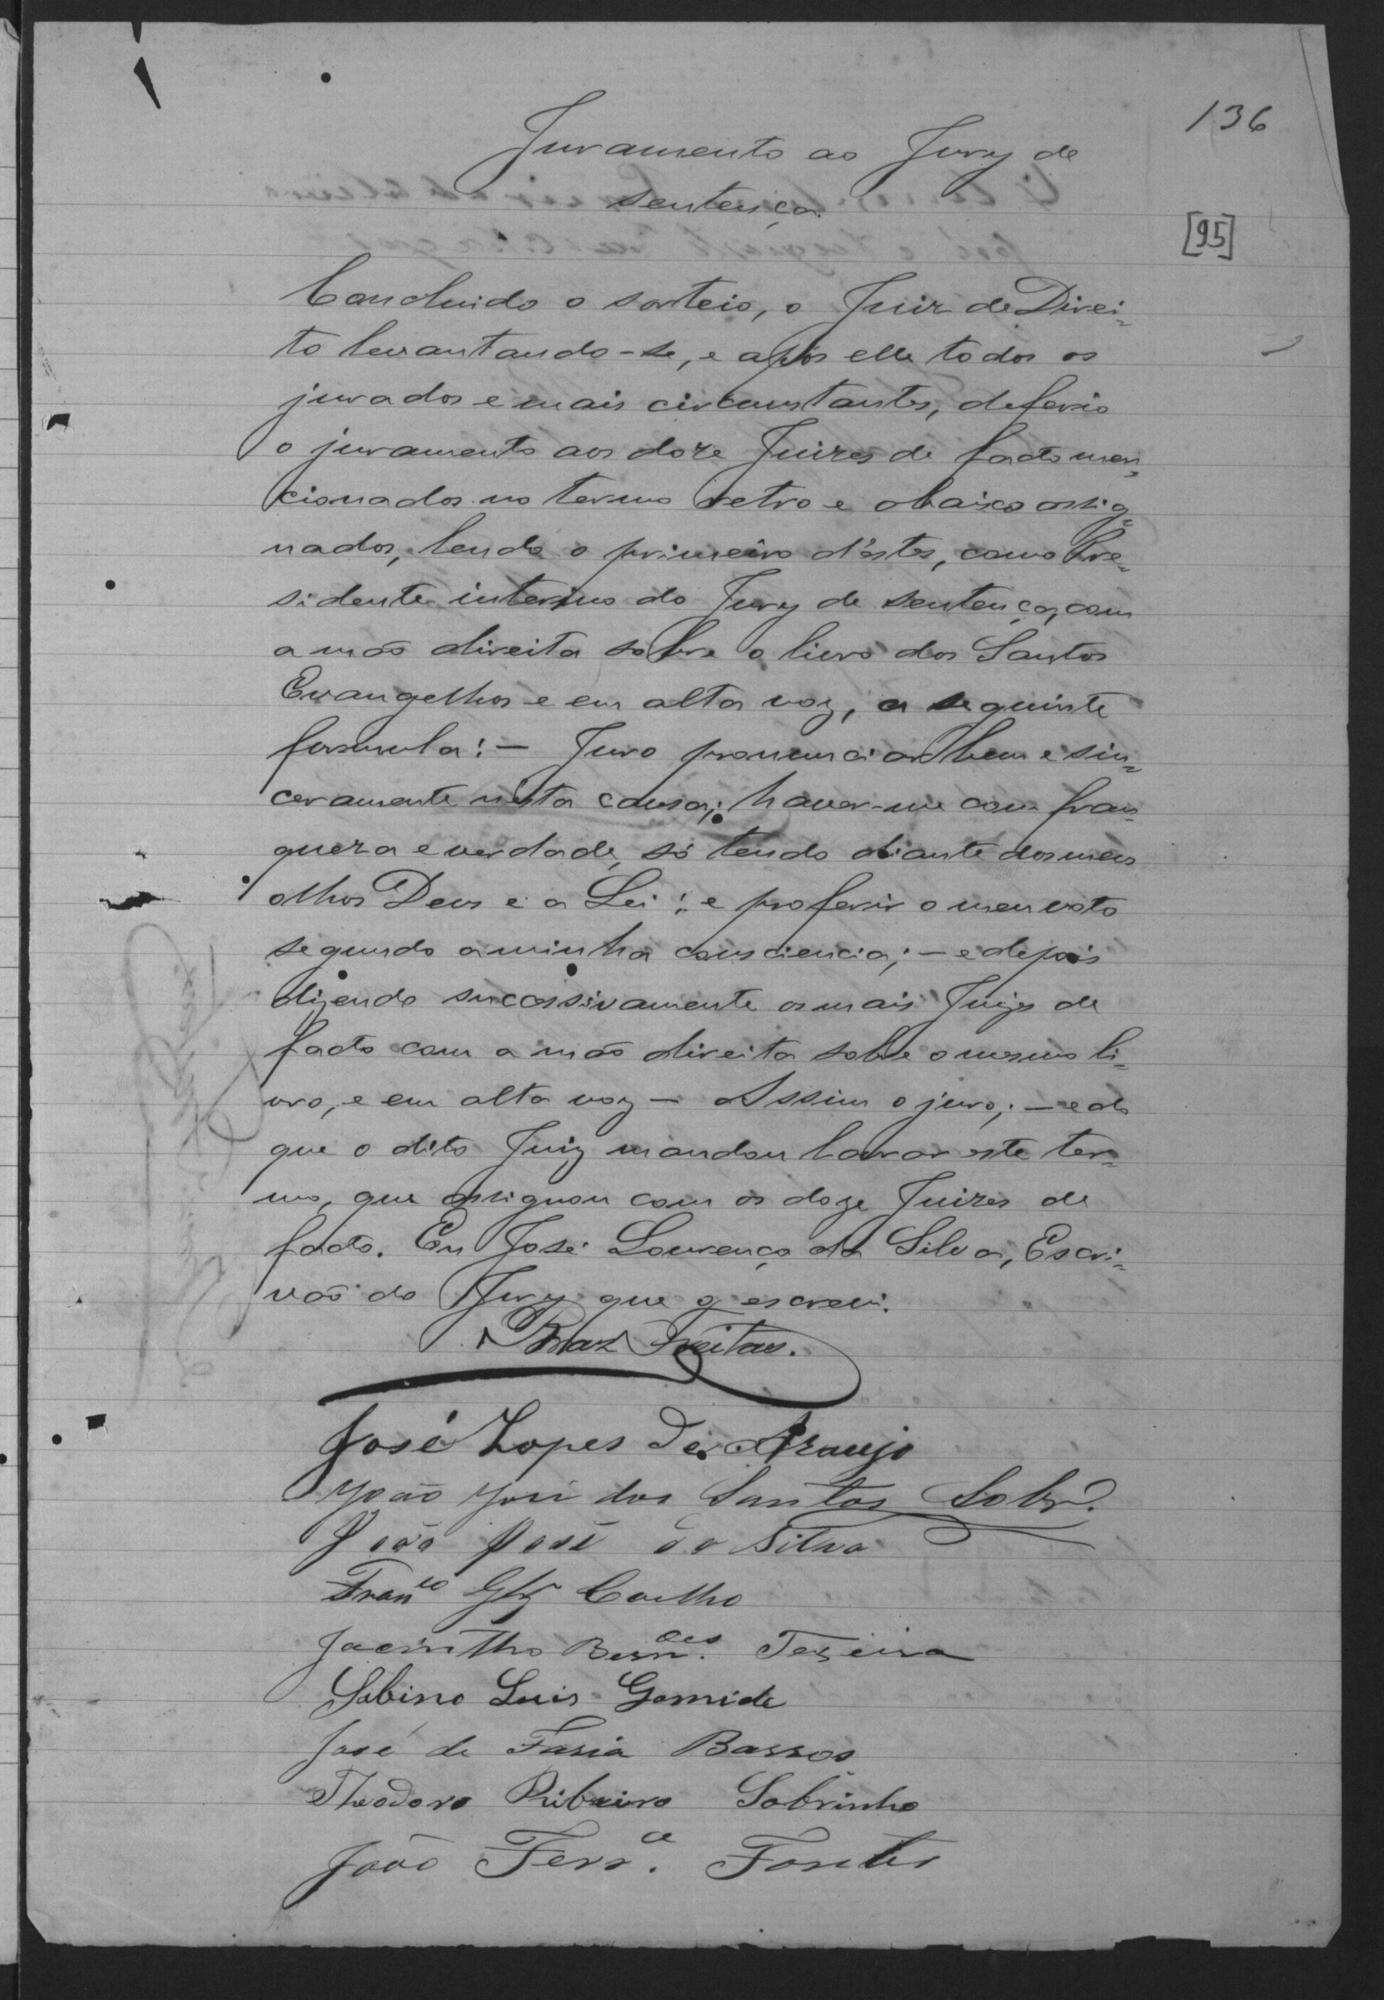 136
Juramento ao Jury de
sentença.
[95]
Concluido o sorteio, o Juiz de Direi-
to levantando-se, e após elle todos os
jurados e mais circumstantes, deferio
o juramento aos doze Juizes de facto men-
cionados no termo retro e abaixo assig-
nados, lendo o primeiro d'estes, como Pre-
sidente interino do Jury de sentença, com
a mão direita sobre o livro dos Santos
Evangelhos e em alta voz, a seguinte
formula: — Juro pronunciar bem e sin-
ceramente nésta causa; haver-me com fran-
queza e verdade, só tendo diante dos meus
olhos Deus e a Lei; e proferir o meu voto
segundo a minha consciencia; — e depois
dizendo successivamente os mais Juizes de
facto com a mão direita sobre o mesmo li-
vro, e em alta voz — Assim o juro; — e do
que o dito Juiz mandou lavrar este ter-
mo, que assignou com os doze Juizes de
facto. Eu José Lourenço da Silva, Escri-
vão do Jury que o escrevi.
Braz Freitas.
José Lopes de Araujo
João José dos Santos Sobrº.
João José da Silva
Franco Glz Coelho
Jacintho Bern.des Texeira
Sabino Luis Gomide
José de Faria Bassos
Theodoro Ribeiro Sobrinho
João Ferr.a Fontes